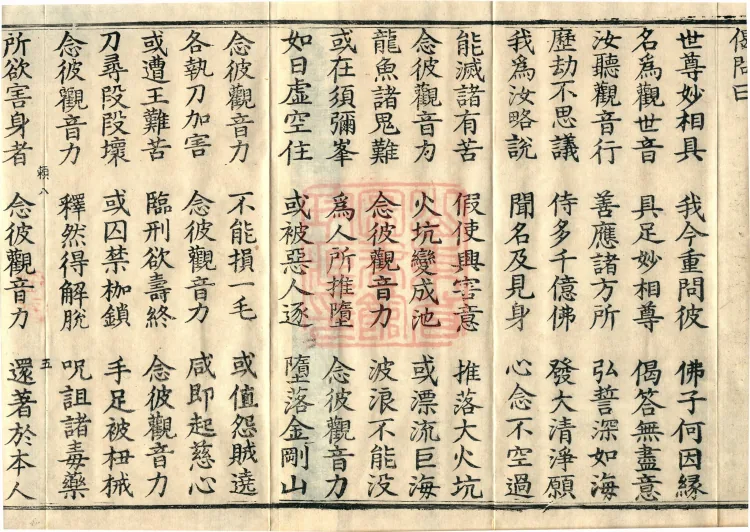 偈問曰
世尊妙相具 我今重問彼 佛子何因緣
名爲觀世音 具足妙相尊 偈答無盡意
汝聽觀音行 善應諸方所 弘誓深如海
歷劫不思議 侍多千億佛 發大清淨願
我爲汝略說 聞名及見身 心念不空過
能滅諸有苦 假使興害意 推落大火坑
念彼觀音力 火坑變成池 或漂流巨海
龍魚諸鬼難 念彼觀音力 波浪不能没
或在須彌峯 爲人所推墮 念彼觀音力
如日虛空住 或被惡人逐 墮落金剛山
念彼觀音力 不能損一毛 或值怨賊遶
各執刀加害 念彼觀音力 咸即起慈心
或遭王難苦 臨刑欲壽終 念彼觀音力
刀尋段段壞 或囚禁枷鎖 手足被杻械
念彼觀音力 釋然得解脫 呪詛諸毒藥
賴八 五
所欲害身者 念彼觀音力 還著於本人